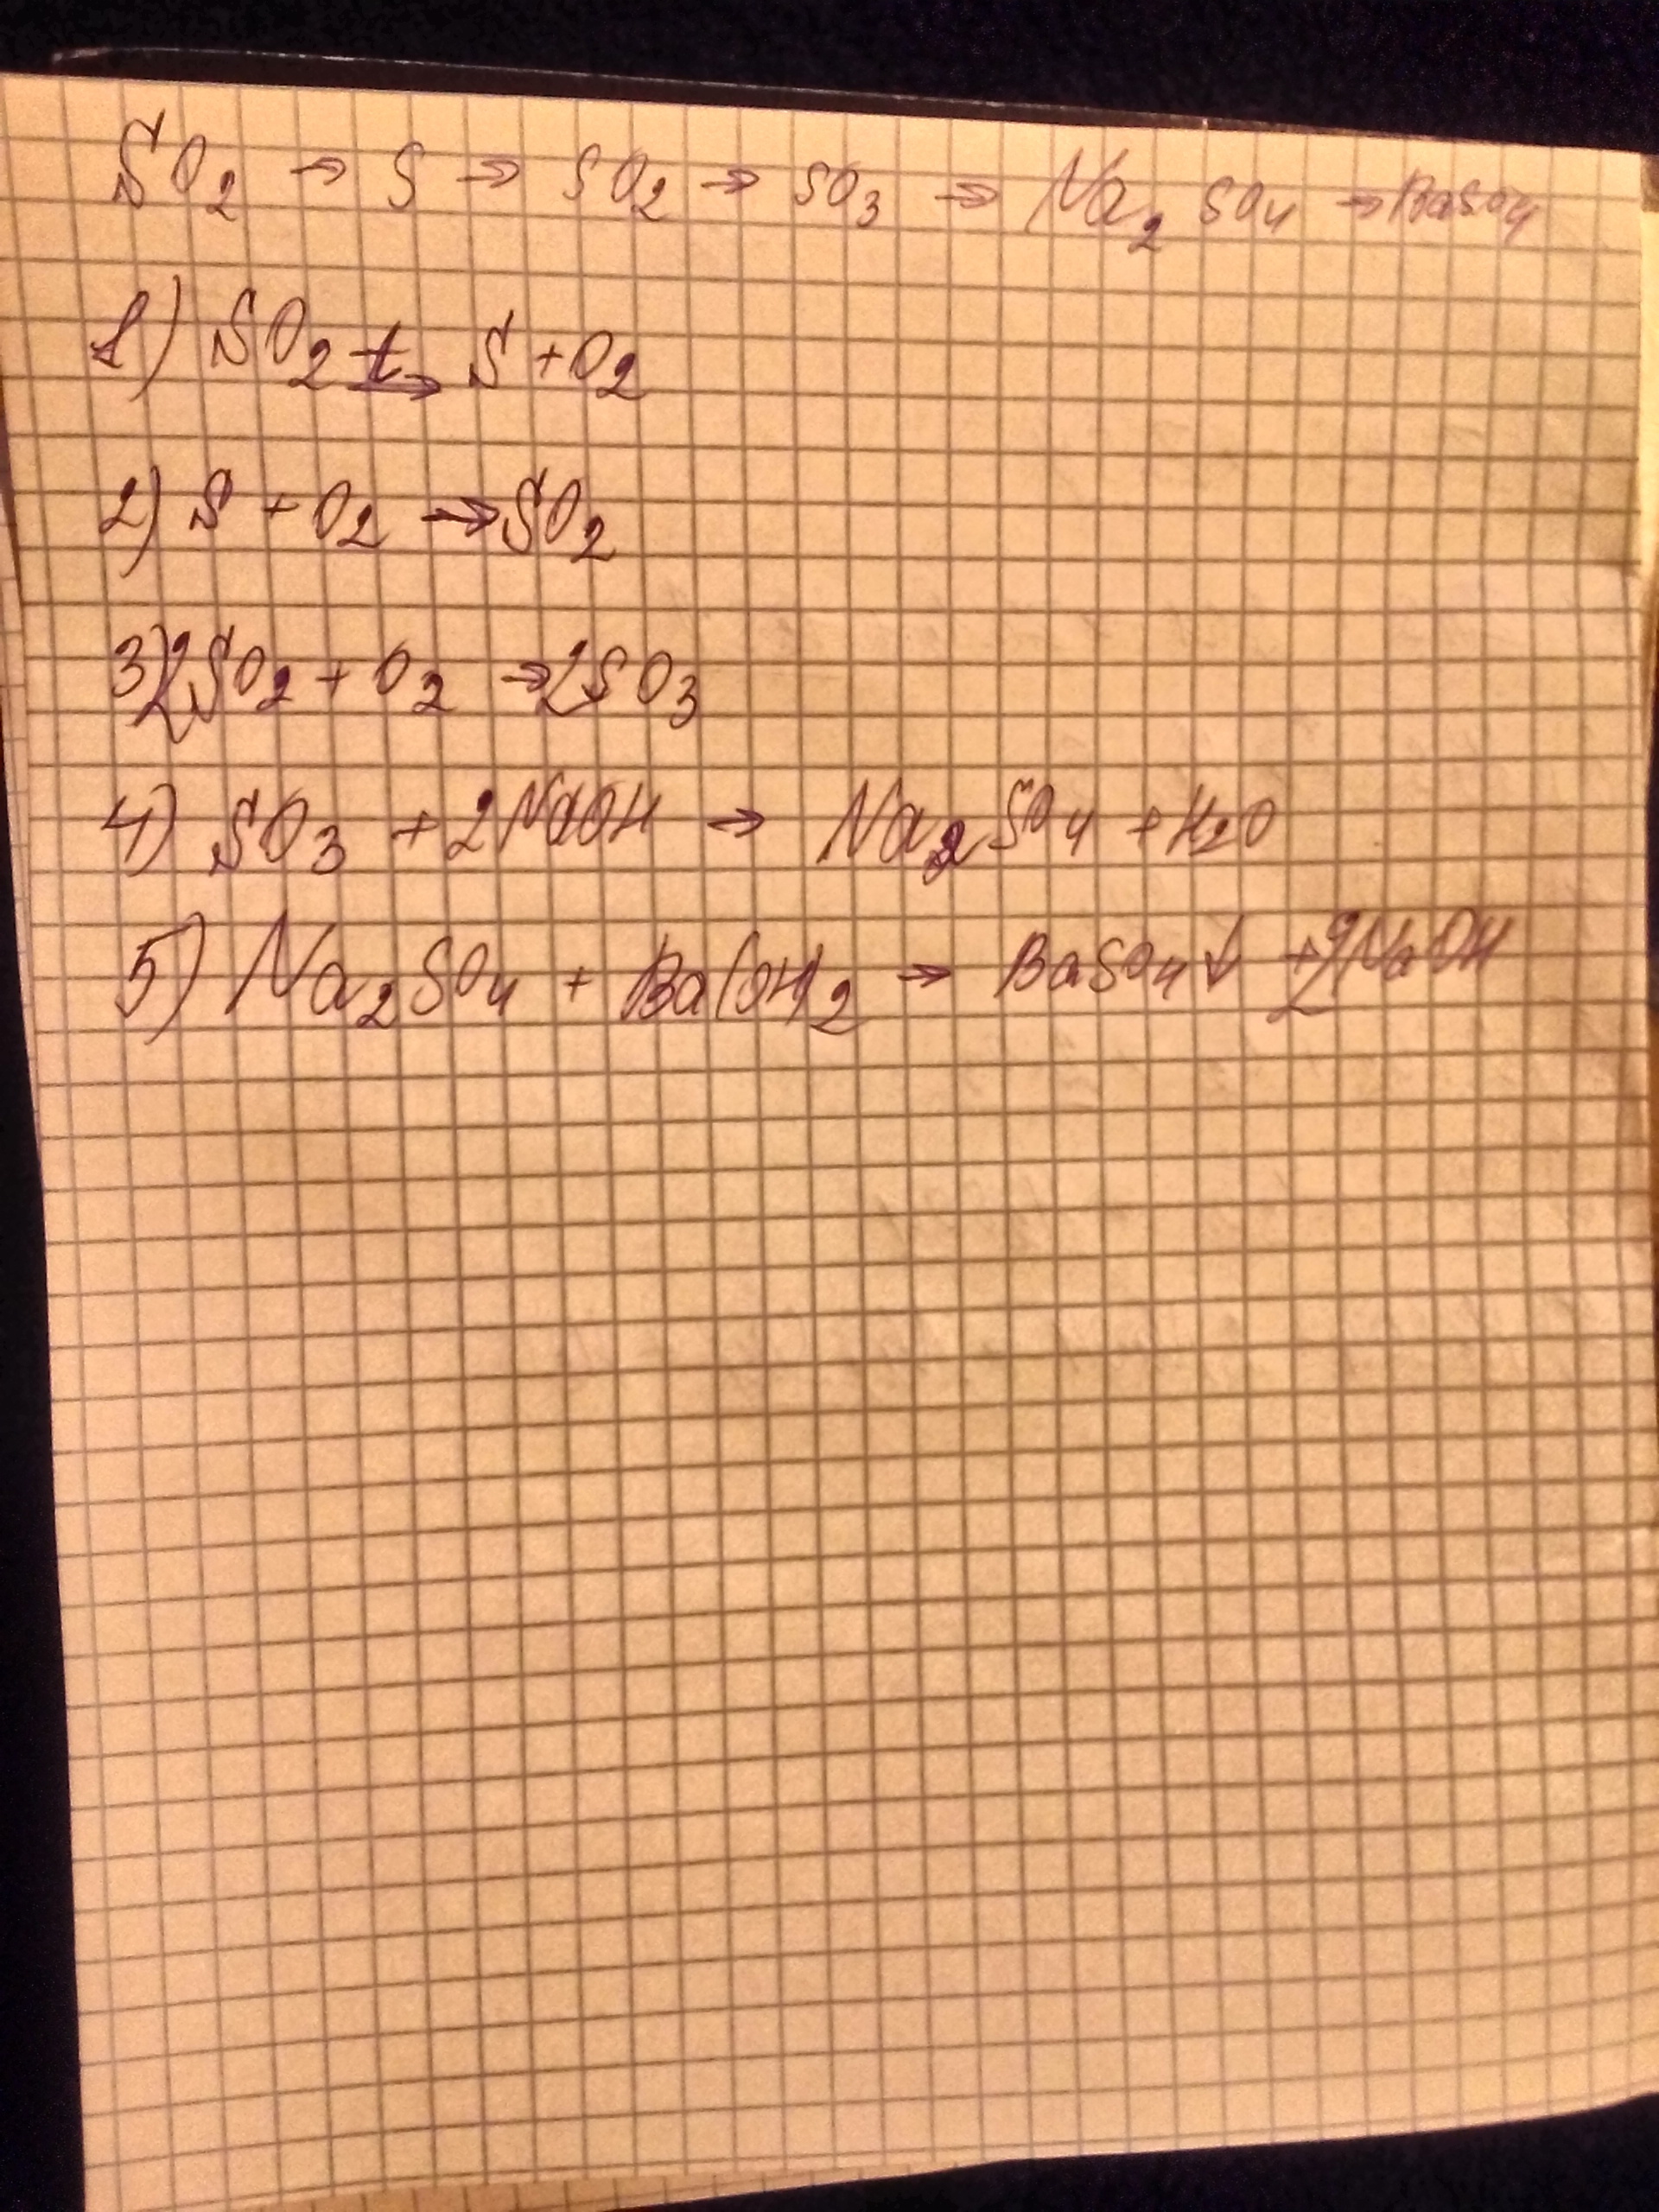 SO₂ → S → SO₂ → SO₃ → Na₂SO₄ → BaSO₄
1) SO₂ t→ S + O₂
2) S + O₂ → SO₂
3) 2SO₂ + O₂ → 2SO₃
4) SO₃ + 2NaOH → Na₂SO₄ + H₂O
5) Na₂SO₄ + Ba(OH)₂ → BaSO₄↓ + 2NaOH